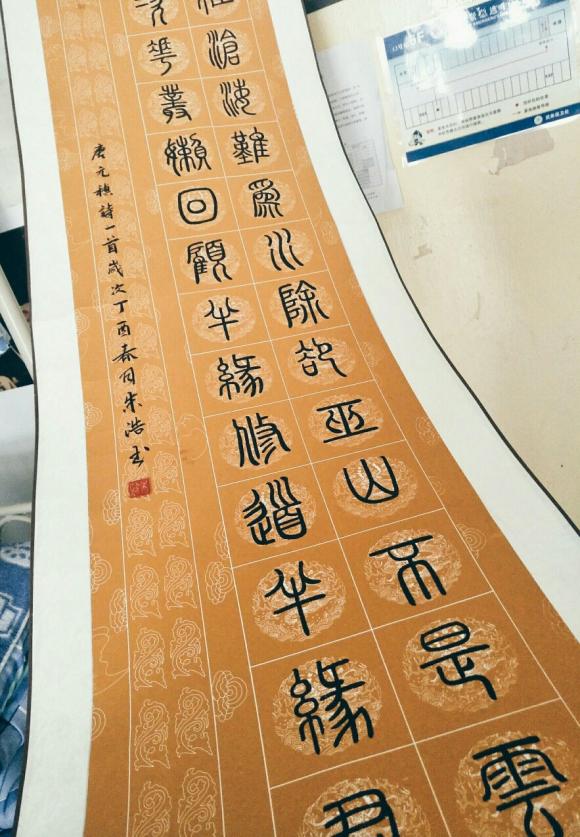 滄海難爲水除卻巫山不是雲
次華叢嬾回顧半緣修道半緣君
唐元稹詩一首歲次丁酉春月朱浩书